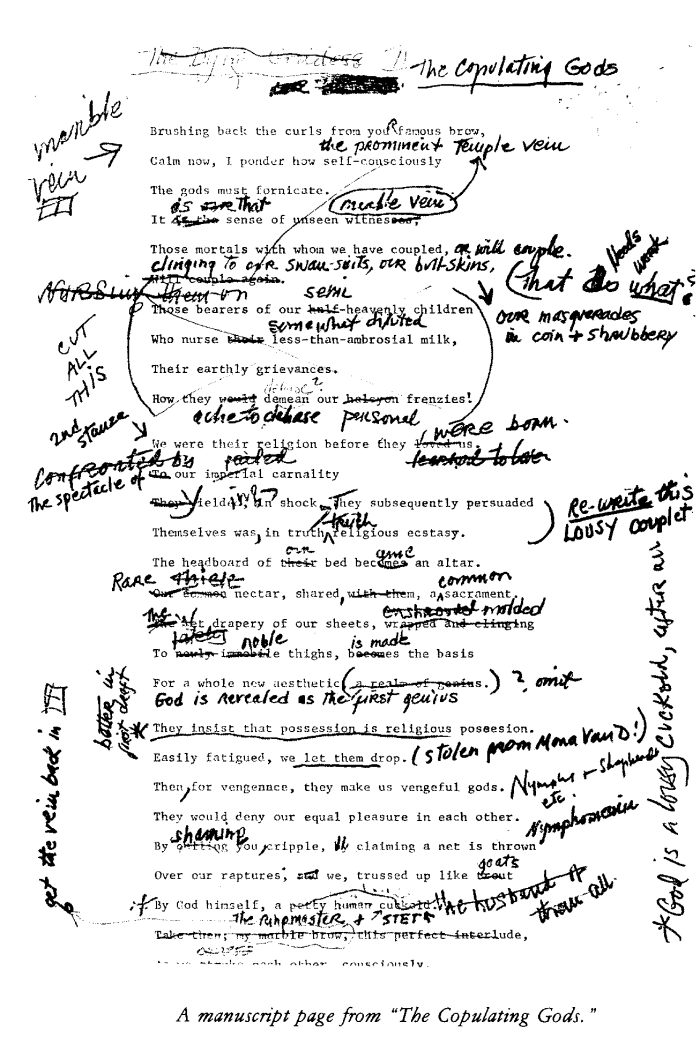 The Dying Goddess
The Copulating Gods
marble
vein
III
Brushing back the curls from your famous brow,
the prominent temple vein
Calm now, I ponder how self-consciously
The gods must fornicate.
is sure that
(marble vein)
It is the sense of unseen witnesses,
Those mortals with whom we have coupled, or will couple.
clinging to our swan-suits, our bull-skins,
Will couple again.
(That do what?
needs work
Nursing them on
semi
our masquerades
in coin + shrubbery
Those bearers of our half-heavenly children
somewhat diluted
Who nurse their less-than-ambrosial milk,
CUT
ALL
THIS
Their earthly grievances.
debase?
How they would demean our halcyon frenzies!
ache to debase personal
2nd stanza
were born.
We were their religion before they loved us.
Confronted by
learned to love
The spectacle of
To our imperial carnality
They yielded, in shock. They subsequently persuaded
Re-write this
lousy couplet
truth
Themselves was, in truth religious ecstasy.
our came
The headboard of their bed becomes an altar.
Rare common
Our common nectar, shared, with them, a sacrament.
The enshrouded molded
The wet drapery of our sheets, wrapped and clinging
noble is made
To newly immobile thighs, becomes the basis
For a whole new aesthetic (a realm of genius.) ?, omit
God is revealed as the first genius
better in
first draft
* They insist that possession is religious possesion.
Easily fatigued, we let them drop. (stolen from Mona Van D!)
get the vein back in III
Then, for vengeance, they make us vengeful gods.
Nymphs + Shepherds
etc.
Nymphomania
They would deny our equal pleasure in each other.
shaming
By cutting you, cripple, by claiming a net is thrown
goats
Over our raptures, and we, trussed up like trout
By God himself, a petty human cuckold.
the husband of
them all
The ringmaster, + STET
Take then; my marble brow, this perfect interlude,
As we stroke each other, consciously.
*God is a lousy cuckold, after all
A manuscript page from "The Copulating Gods."